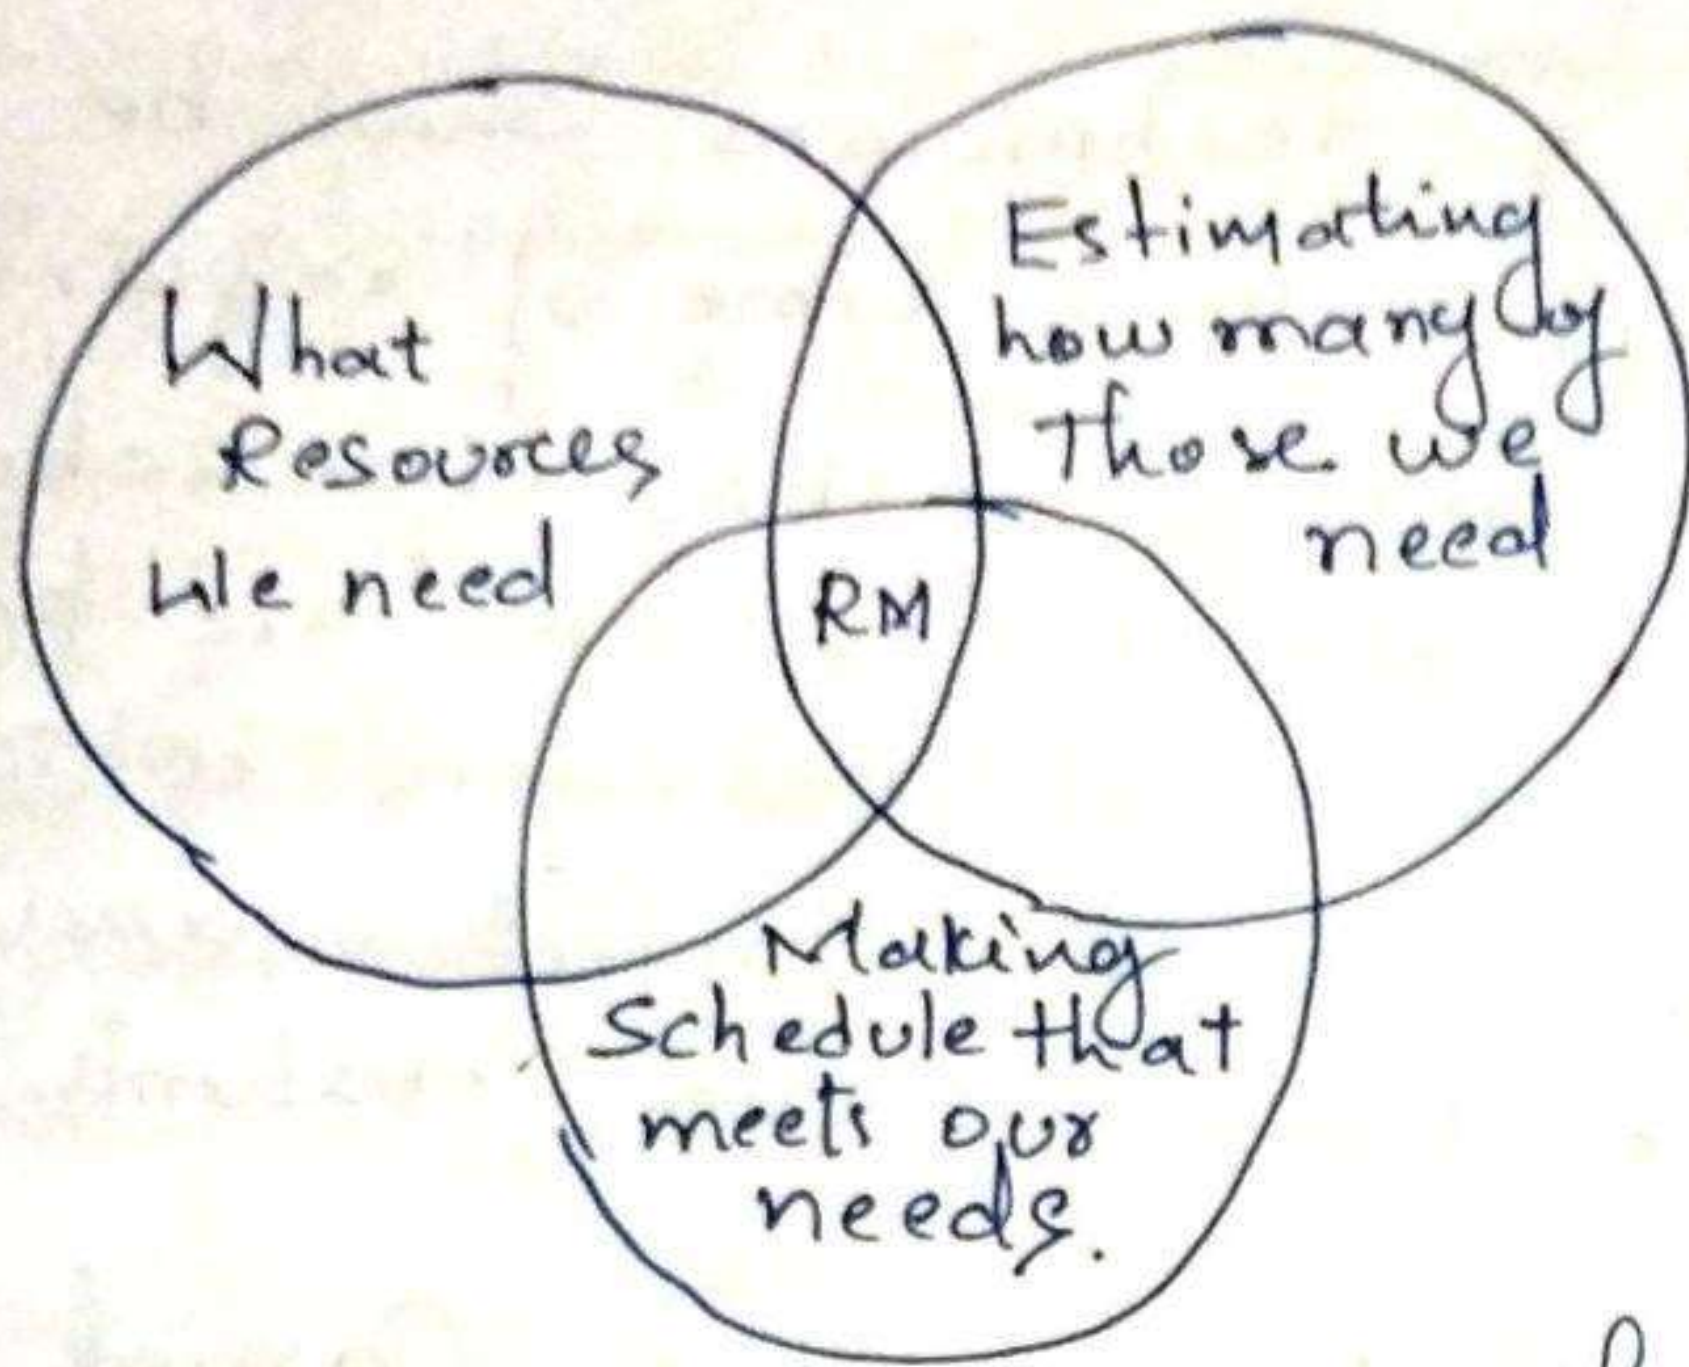 What
Resources
We need
Estimating
how many of
Those we
need
RM
Making
Schedule that
meets our
needs.